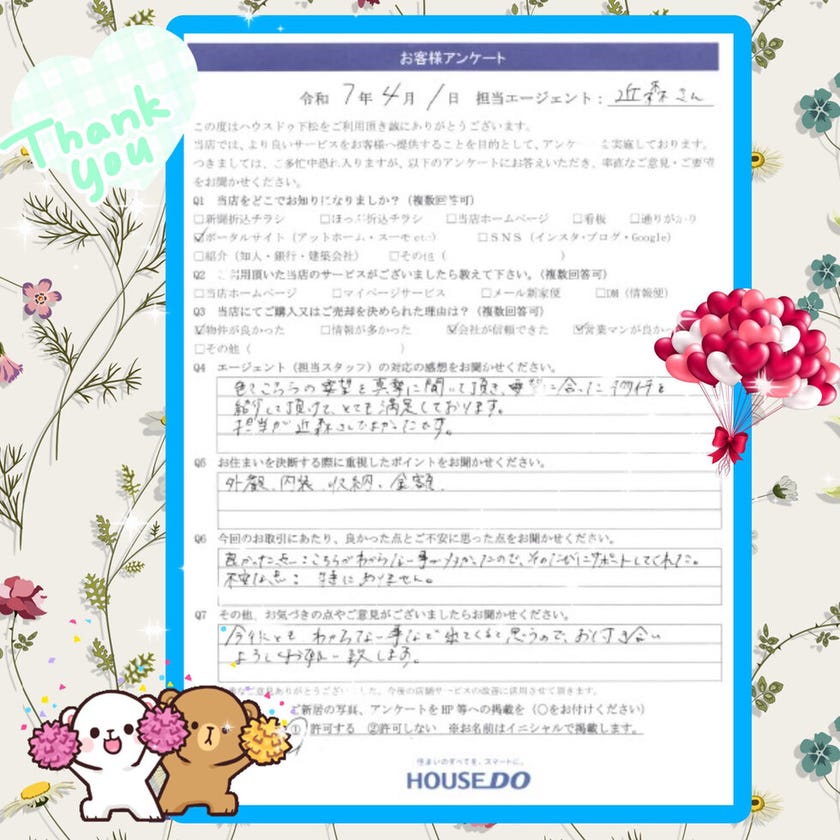 Thank
you
お客様アンケート
令和 7年 4月 1日 担当エージェント： 近森さん
この度はハウスドゥ下松をご利用頂き誠にありがとうございます。
当店では、より良いサービスをお客様へ提供することを目的として、アンケ を実施しております。
つきましては、ご多忙中恐れ入りますが、以下のアンケートにお答えいただき、率直なご意見・ご要望
をお聞かせください。
Q1 当店をどこでお知りになりましか？（複数回答可）
□新聞折込チラシ □ほっぷ折込チラシ □当店ホームページ □看板 □通りがかり
☑ポータルサイト（アットホーム・スーモ etc） □SNS（インスタ・ブログ・Google）
□紹介（知人・銀行・建築会社） □その他（ ）
Q2 ご利用頂いた当店のサービスがございましたら教えて下さい。（複数回答可）
□当店ホームページ □マイページサービス □メール新家便 □DM（情報便）
Q3 当店にてご購入又はご売却を決められた理由は？（複数回答可）
☑物件が良かった □情報が多かった ☑会社が信頼できた ☑営業マンが良かっ
□その他（ ）
Q4 エージェント（担当スタッフ）の対応の感想をお聞かせください。
色々こちらの要望を真摯に聞いて頂き、要望に合った物件を
紹介して頂けて、とても満足しております。
担当が近森さんでよかったです。
Q5 お住まいを決断する際に重視したポイントをお聞かせください。
外観、内装、収納、金額、
Q6 今回のお取引にあたり、良かった点とご不安に思った点をお聞かせください。
良かった点：こちらがわからない事が多かったので、そのたびにサポートしてくれた。
不安な点： 特にありません。
Q7 その他、お気づきの点やご意見がございましたらお聞かせください。
今後とも わからない事など出てくると思うので、お付き合い
よろしくお願い致します。
なご意見ありがとうございました。今後の店舗サービスの改善に活用させて頂きます。
ご新居の写真、アンケートをHP等への掲載を（○をお付けください）
① 許可する ②許可しない ※お名前はイニシャルで掲載します。
住まいのすべてを、スマートに。
HOUSEDO